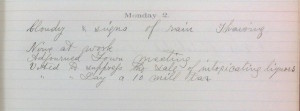 Monday 2
Cloudy & signs of rain Thawing
Nims at work
Adjourned Town meeting
Voted to suppress the sale of intoxicating liquors
" " Lay a 10 mill tax